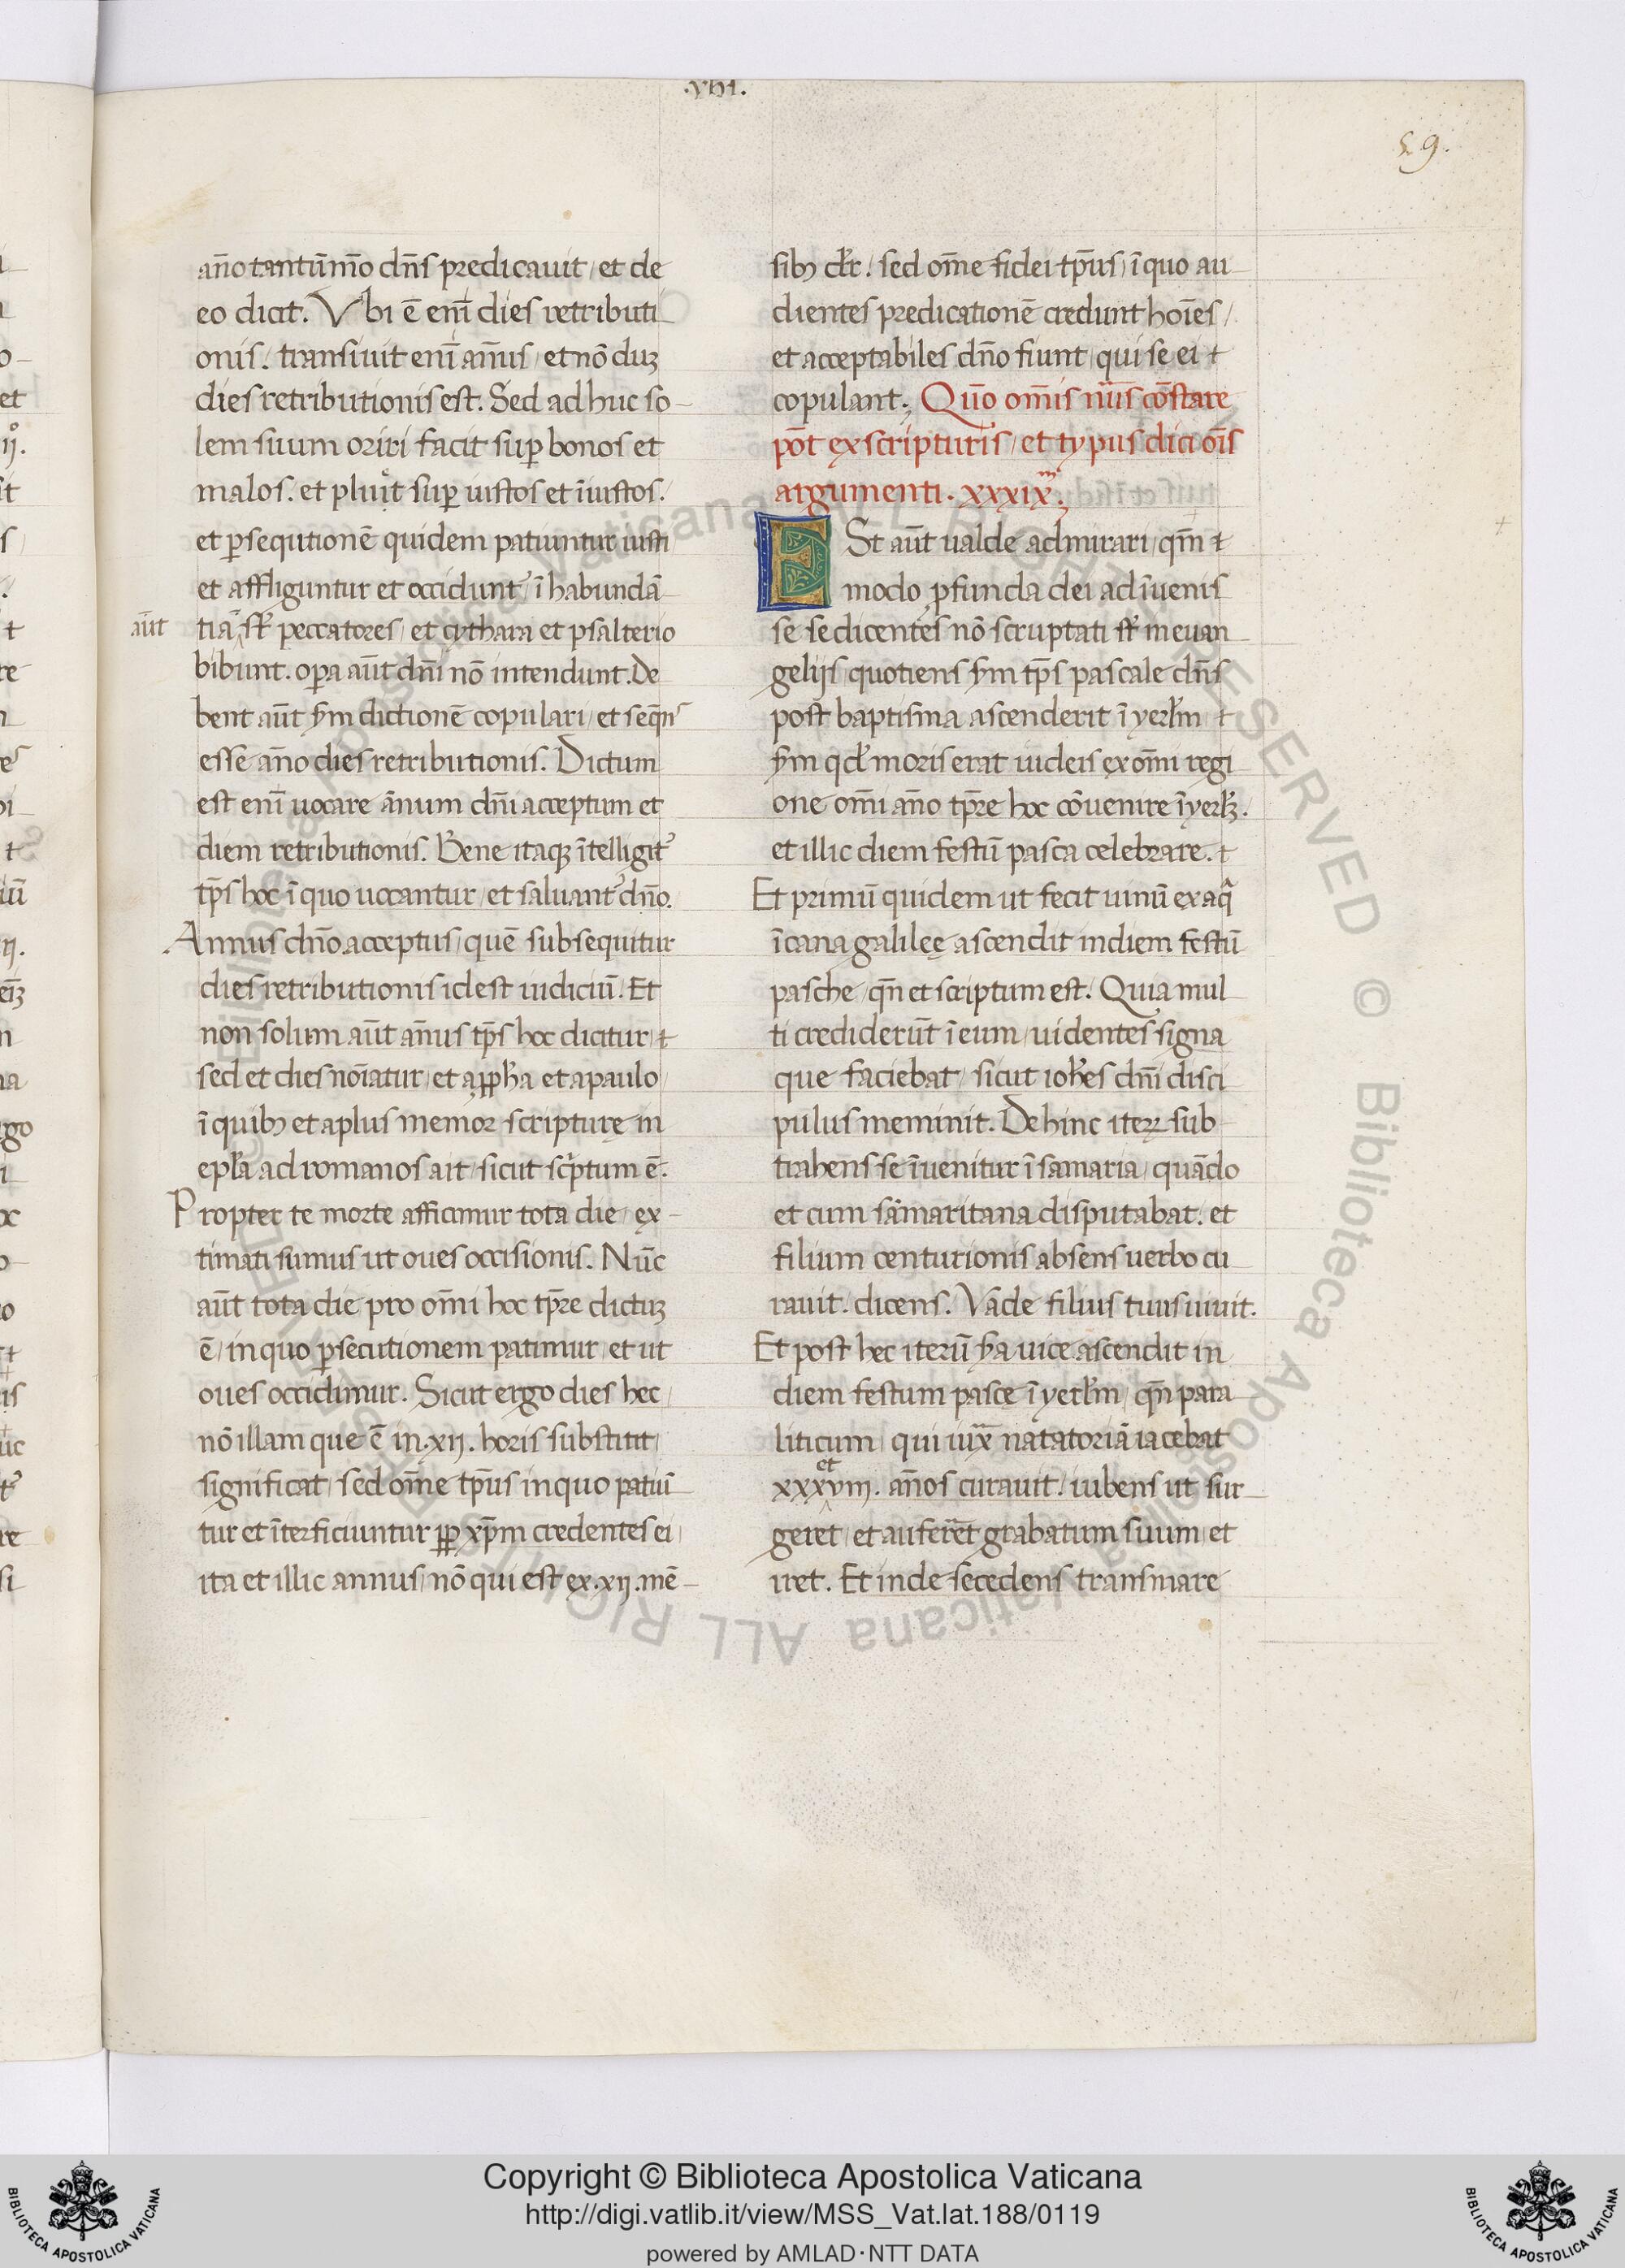 .viii.
59.
an̄o tantūm̄o dn̄s predicauit / et de
eo dicit. Vbi ē enī dies retributi
onis / transiuit enī an̄us / et nō duȝ
dies retributionis est. Sed adhuc so-
lem suum oriri facit suꝑ bonos et
malos. et pluit suꝑ iustos et īiustos.
et ꝑsequtionē quidem patiuntur iusti
et affliguntur et occidunt᷑ / ī habundā
aūt
tiā st̄ peccatores / et cythara et psalterio
bibunt. oꝑa aūt dn̄i nō intendunt. De
bent aūt ẜm dictionē copulari / et seqn̄s
esse an̄o dies retributionis. Dictum
est enī uocare ānum dn̄i acceptum et
diem retributionis. Bene itaqȝ ītelligit᷑
tp̄s hoc ī quo uocantur / et saluant᷑ dn̄o.
Annus dn̄o acceptus / quē subsequitur
dies retributionis idest iudiciū. Et
non solum aūt an̄us tp̄s hoc dicitur /
sed et dies noīatur / et a ꝓph̄a et a paulo
ī quibȝ et aplus memor scripturę in
epl̄a ad romanos ait / sicut scͥptum ē.
Propter te morte afficimur tota die / ex-
timati sumus ut oues occisionis. Nūc
aūt tota die pro om̄i hoc tp̄re dictuȝ
ē / in quo ꝑsecutionem patimur / et ut
oues occidimur. Sicut ergo dies hec /
nō illam que ē in .xij. horis substitit /
significat / sed om̄e tp̄us in quo patiū
tur et īterficiuntur ꝓꝑ xp̄m credentes ei /
ita et illic annus / nō qui est ex .xij. mē-
sibȝ dr̄. sed om̄e fidei tp̄us / ī quo au
dientes predicationē credunt hoīes /
et acceptabiles dn̄o fiunt / qui se ei
copulant. Quō om̄is nūs cōstare
pōt ex scripturis / et typus dici oīs
argumenti. xxxixͫ.
ESt aūt ualde admirari / qm̄
modo ꝓfunda dei adīuenis
se se dicentes nō scruptati st̄ in euan
gelijs quotiens ẜm tp̄s pascale dn̄s
post baptisma ascenderit ī yerl̄m
ẜm qd̄ moris erat iudeis ex om̄i regi
one om̄i an̄o tp̄re hoc cōuenire ī yerl̄ȝ.
et illic diem festū pasca celebrare.
Et primū quidem ut fecit uinū ex aqͣ
ī cana galilee ascendit in diem festū
pasche / qn̄ et scriptum est. Quia mul
ti crediderūt ī eum / uidentes signa
que faciebat / sicut ioh̄es dn̄i disci
pulus meminit. Dehinc iteꝝ sub
trahens se īuenitur ī samaria / quādo
et cum sāmaritana disputabat. et
filium centurionis absens uerbo cu
rauit. dicens. Vāde filius tuus uiuit.
Et post hec iterū ẜa uice ascendit in
diem festum pascę ī yerl̄m / qn̄ para
liticum / qui iux̄ natatoriā iacebat
et
xxxviij. an̄os curauit / iubens ut sur
geret / et auferet grabatum suum / et
iret. Et inde secedens transmare
© Biblioteca Apostolica Vaticana ALL RIGHTS RESERVED
Copyright © Biblioteca Apostolica Vaticana
http://digi.vatlib.it/view/MSS_Vat.lat.188/0119
powered by AMLAD·NTT DATA
BIBLIOTECA APOSTOLICA VATICANA
BIBLIOTECA APOSTOLICA VATICANA